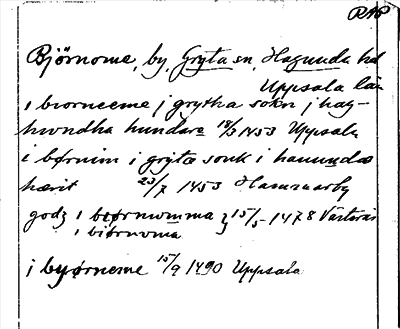 RAP
Björnome, by, Gryta sn, Hagunda hd
Uppsala län
i biorneeme j grytha sokn j hag-
hwndha hundare 18/3 1453 Uppsala
i børnim i gryta sonk i haunudæ
hærit 23/7 1453 Hammarby
godz i biørnwmma } 15/5 1478 Västerås
i biørnvma
j byørneme 15/9 1490 Uppsala